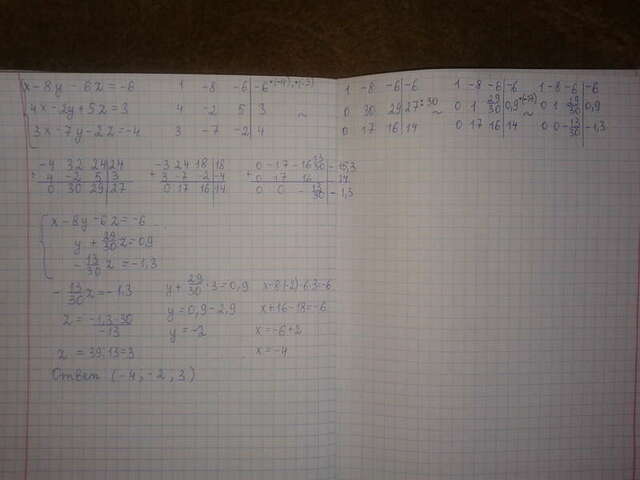 x-8y-6z=-6   1 -8 -6 | -6 ·(-4), ·(-3)   1 -8 -6 | -6   1 -8 -6 | -6   1 -8 -6 | -6
4x-2y+5z=3   4 -2 5 | 3 ~   0 30 29 | 27 :30 ~   0 1 29/30 | 0,9 ·(-17) ~   0 1 29/30 | 0,9
3x-7y-2z=-4   3 -7 -2 | 4   0 17 16 | 14   0 17 16 | 14   0 0 -13/30 | -1,3
-4 32 24 | 24   -3 24 18 | 18   0 -17 -16 13/30 | -15,3
+ 4 -2 5 | 3   + 3 -7 -2 | -4   + 0 17 16 | 14
0 30 29 | 27   0 17 16 | 14   0 0 -13/30 | -1,3
x-8y-6z=-6
y+29/30z=0,9
-13/30z=-1,3
-13/30z=-1,3   y+29/30·3=0,9   x-8(-2)-6·3=-6
z=-1,3·30/-13   y=0,9-2,9   x+16-18=-6
y=-2   x=-6+2
z=39:13=3   x=-4
Ответ (-4, -2, 3)